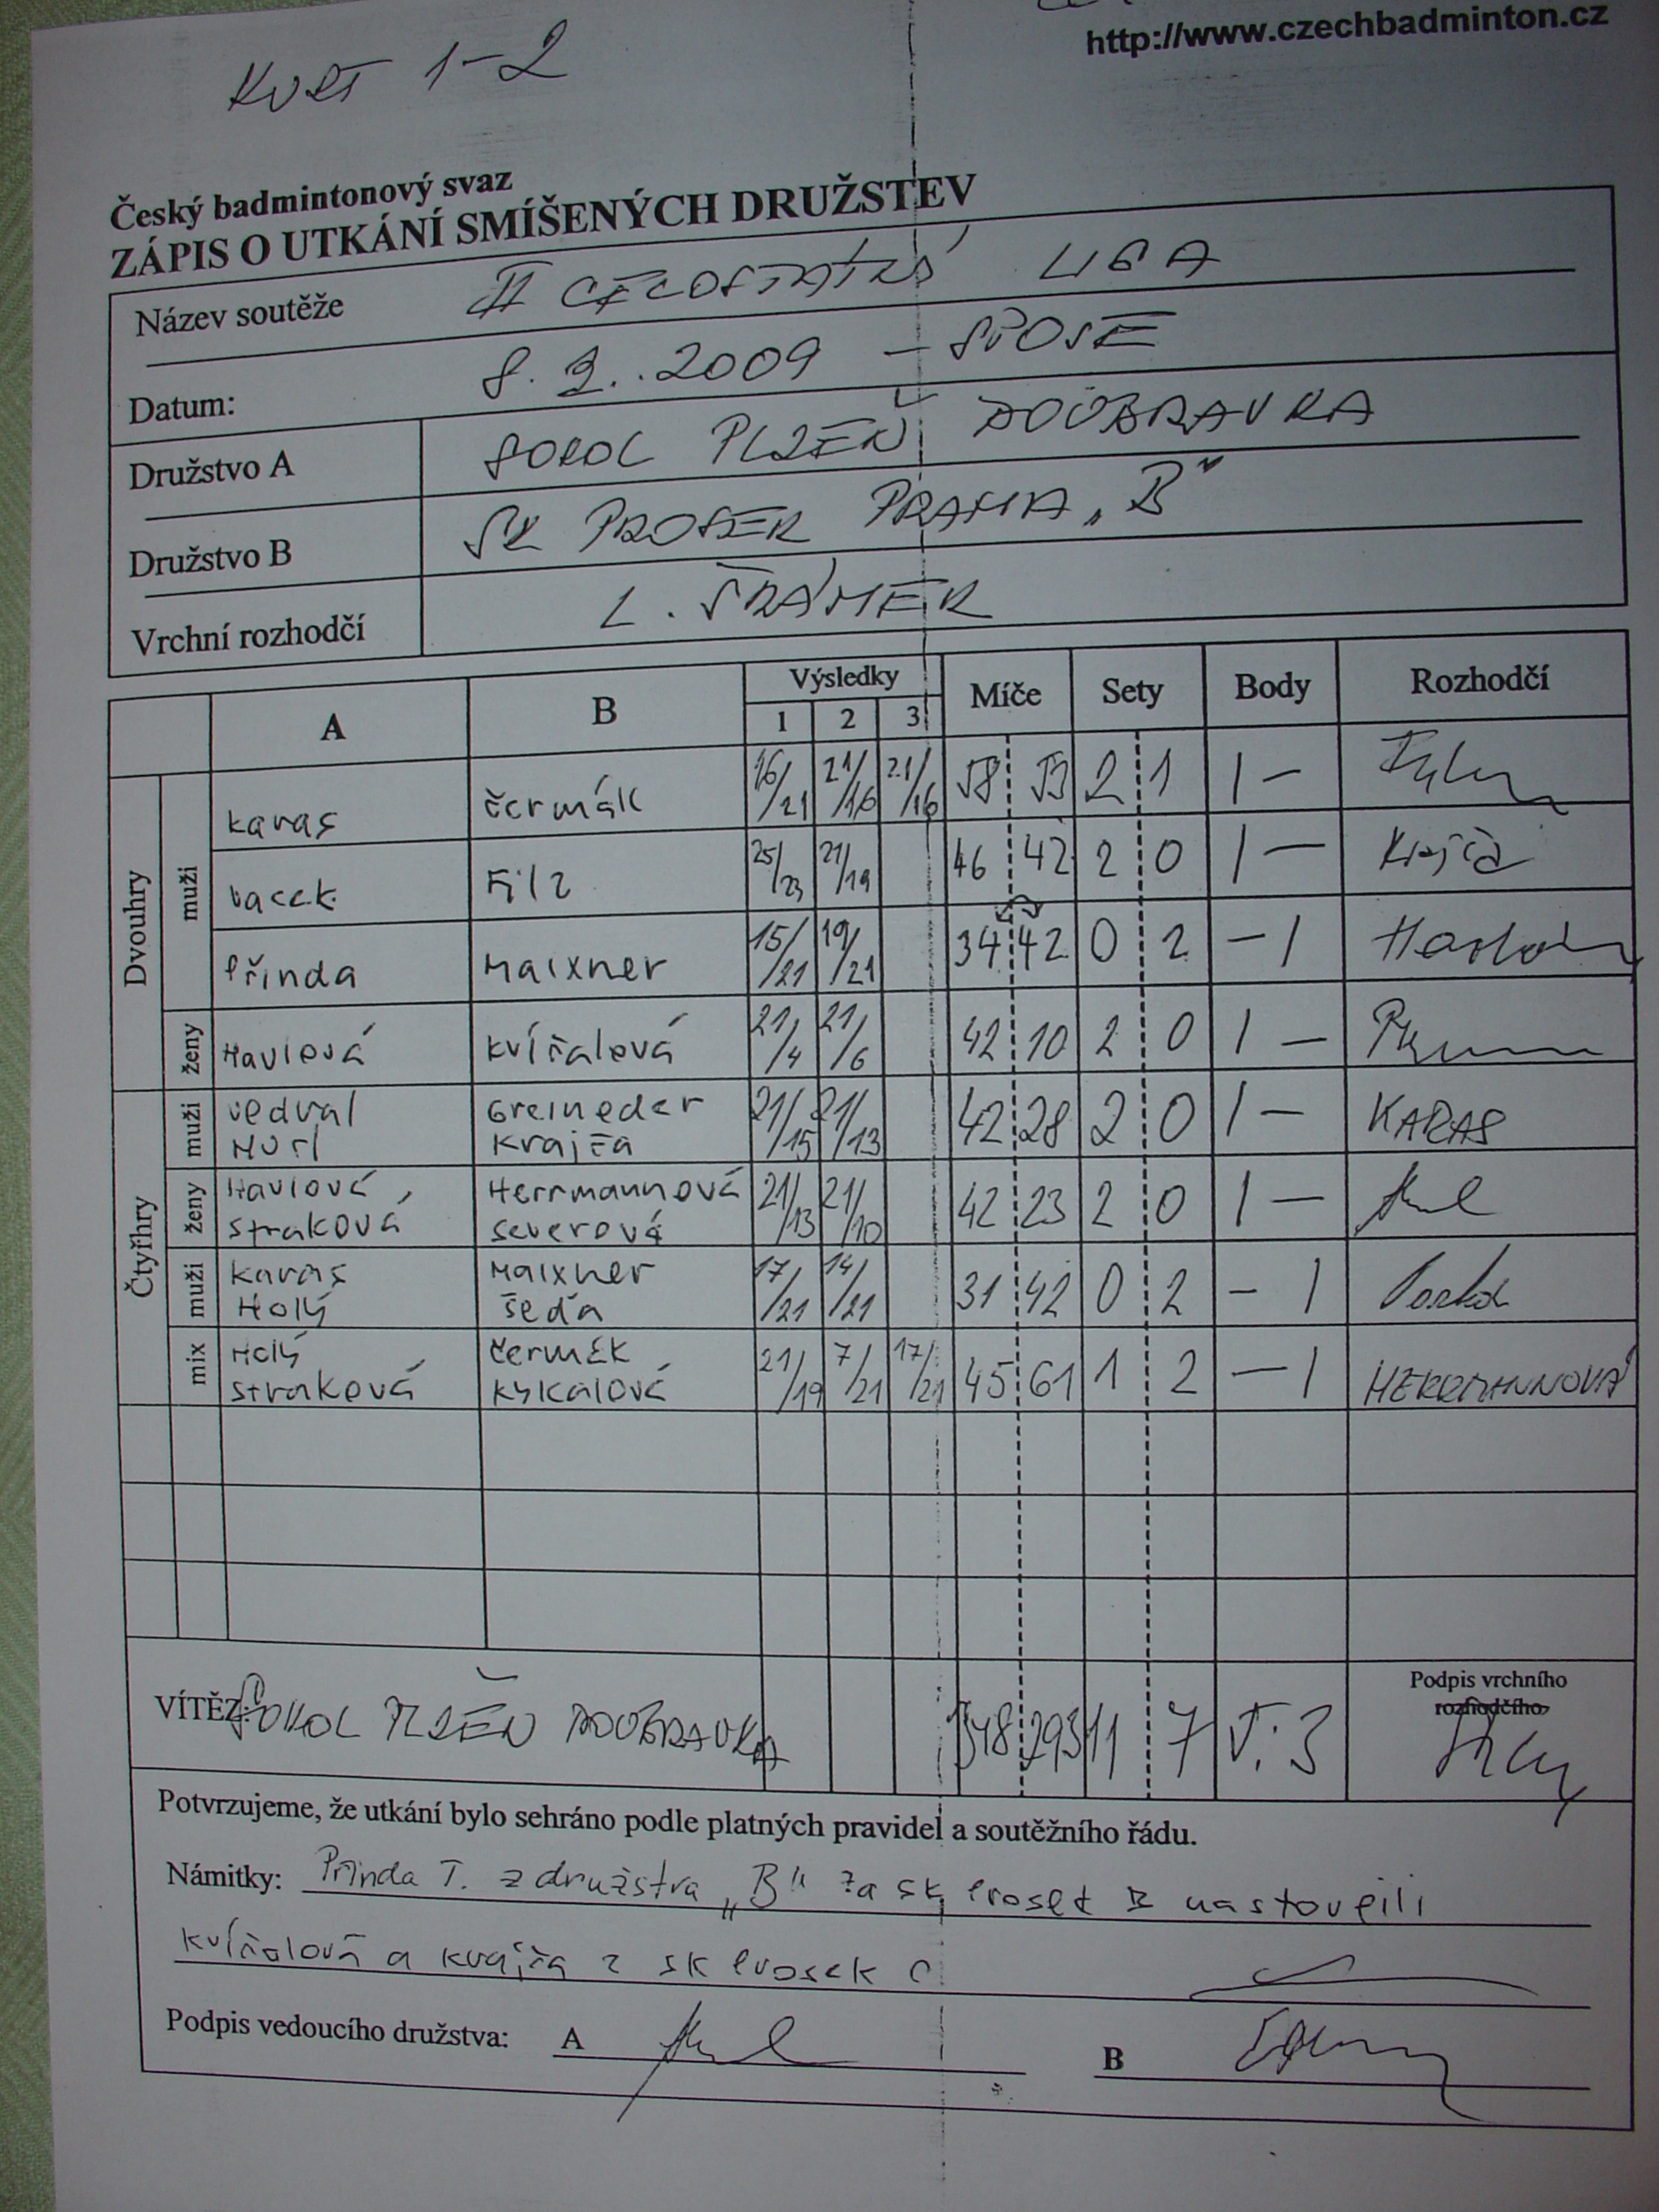 http://www.czechbadminton.cz
KURT 1-2
Český badmintonový svaz
ZÁPIS O UTKÁNÍ SMÍŠENÝCH DRUŽSTEV
Název soutěže II CELOSTÁTNÍ LIGA
Datum: 8. 2. 2009 -
Družstvo A SOKOL PLZEŇ DOUBRAVKA
Družstvo B SK PROSEK PRAHA „B"
Vrchní rozhodčí L. ŠRÁMEK
A B Výsledky 1 2 3 Míče Sety Body Rozhodčí
Dvouhry muži karas čermák 16/21 21/16 21/16 58 53 2 1 1 -
vacek Filz 25/23 21/19 46 42 2 0 1 -
Přinda Maixner 15/21 19/21 34 42 0 2 - 1
ženy Havlová kvíčalová 21/4 21/6 42 10 2 0 1 -
Čtyřhry muži vedral Greineder 21/15 21/13 42 28 2 0 1 - KARAS
krajča
ženy Havlová Herrmannová 21/13 21/10 42 23 2 0 1 -
straková severová
muži karas Maixner 17/21 14/21 31 42 0 2 - 1
Holý šeda
mix Holý čermák 21/19 7/21 17/21 45 61 1 2 - 1 HERRMANNOVÁ
straková kykalová
VÍTĚZ: SOKOL PLZEŇ DOUBRAVKA 348 293 11 7 5:3 Podpis vrchního rozhodčího
Potvrzujeme, že utkání bylo sehráno podle platných pravidel a soutěžního řádu.
Námitky: Přinda T. z družstva „B" za sk Prosek B nastoupili
kvíčalová a krajča z sk Prosek C
Podpis vedoucího družstva: A B